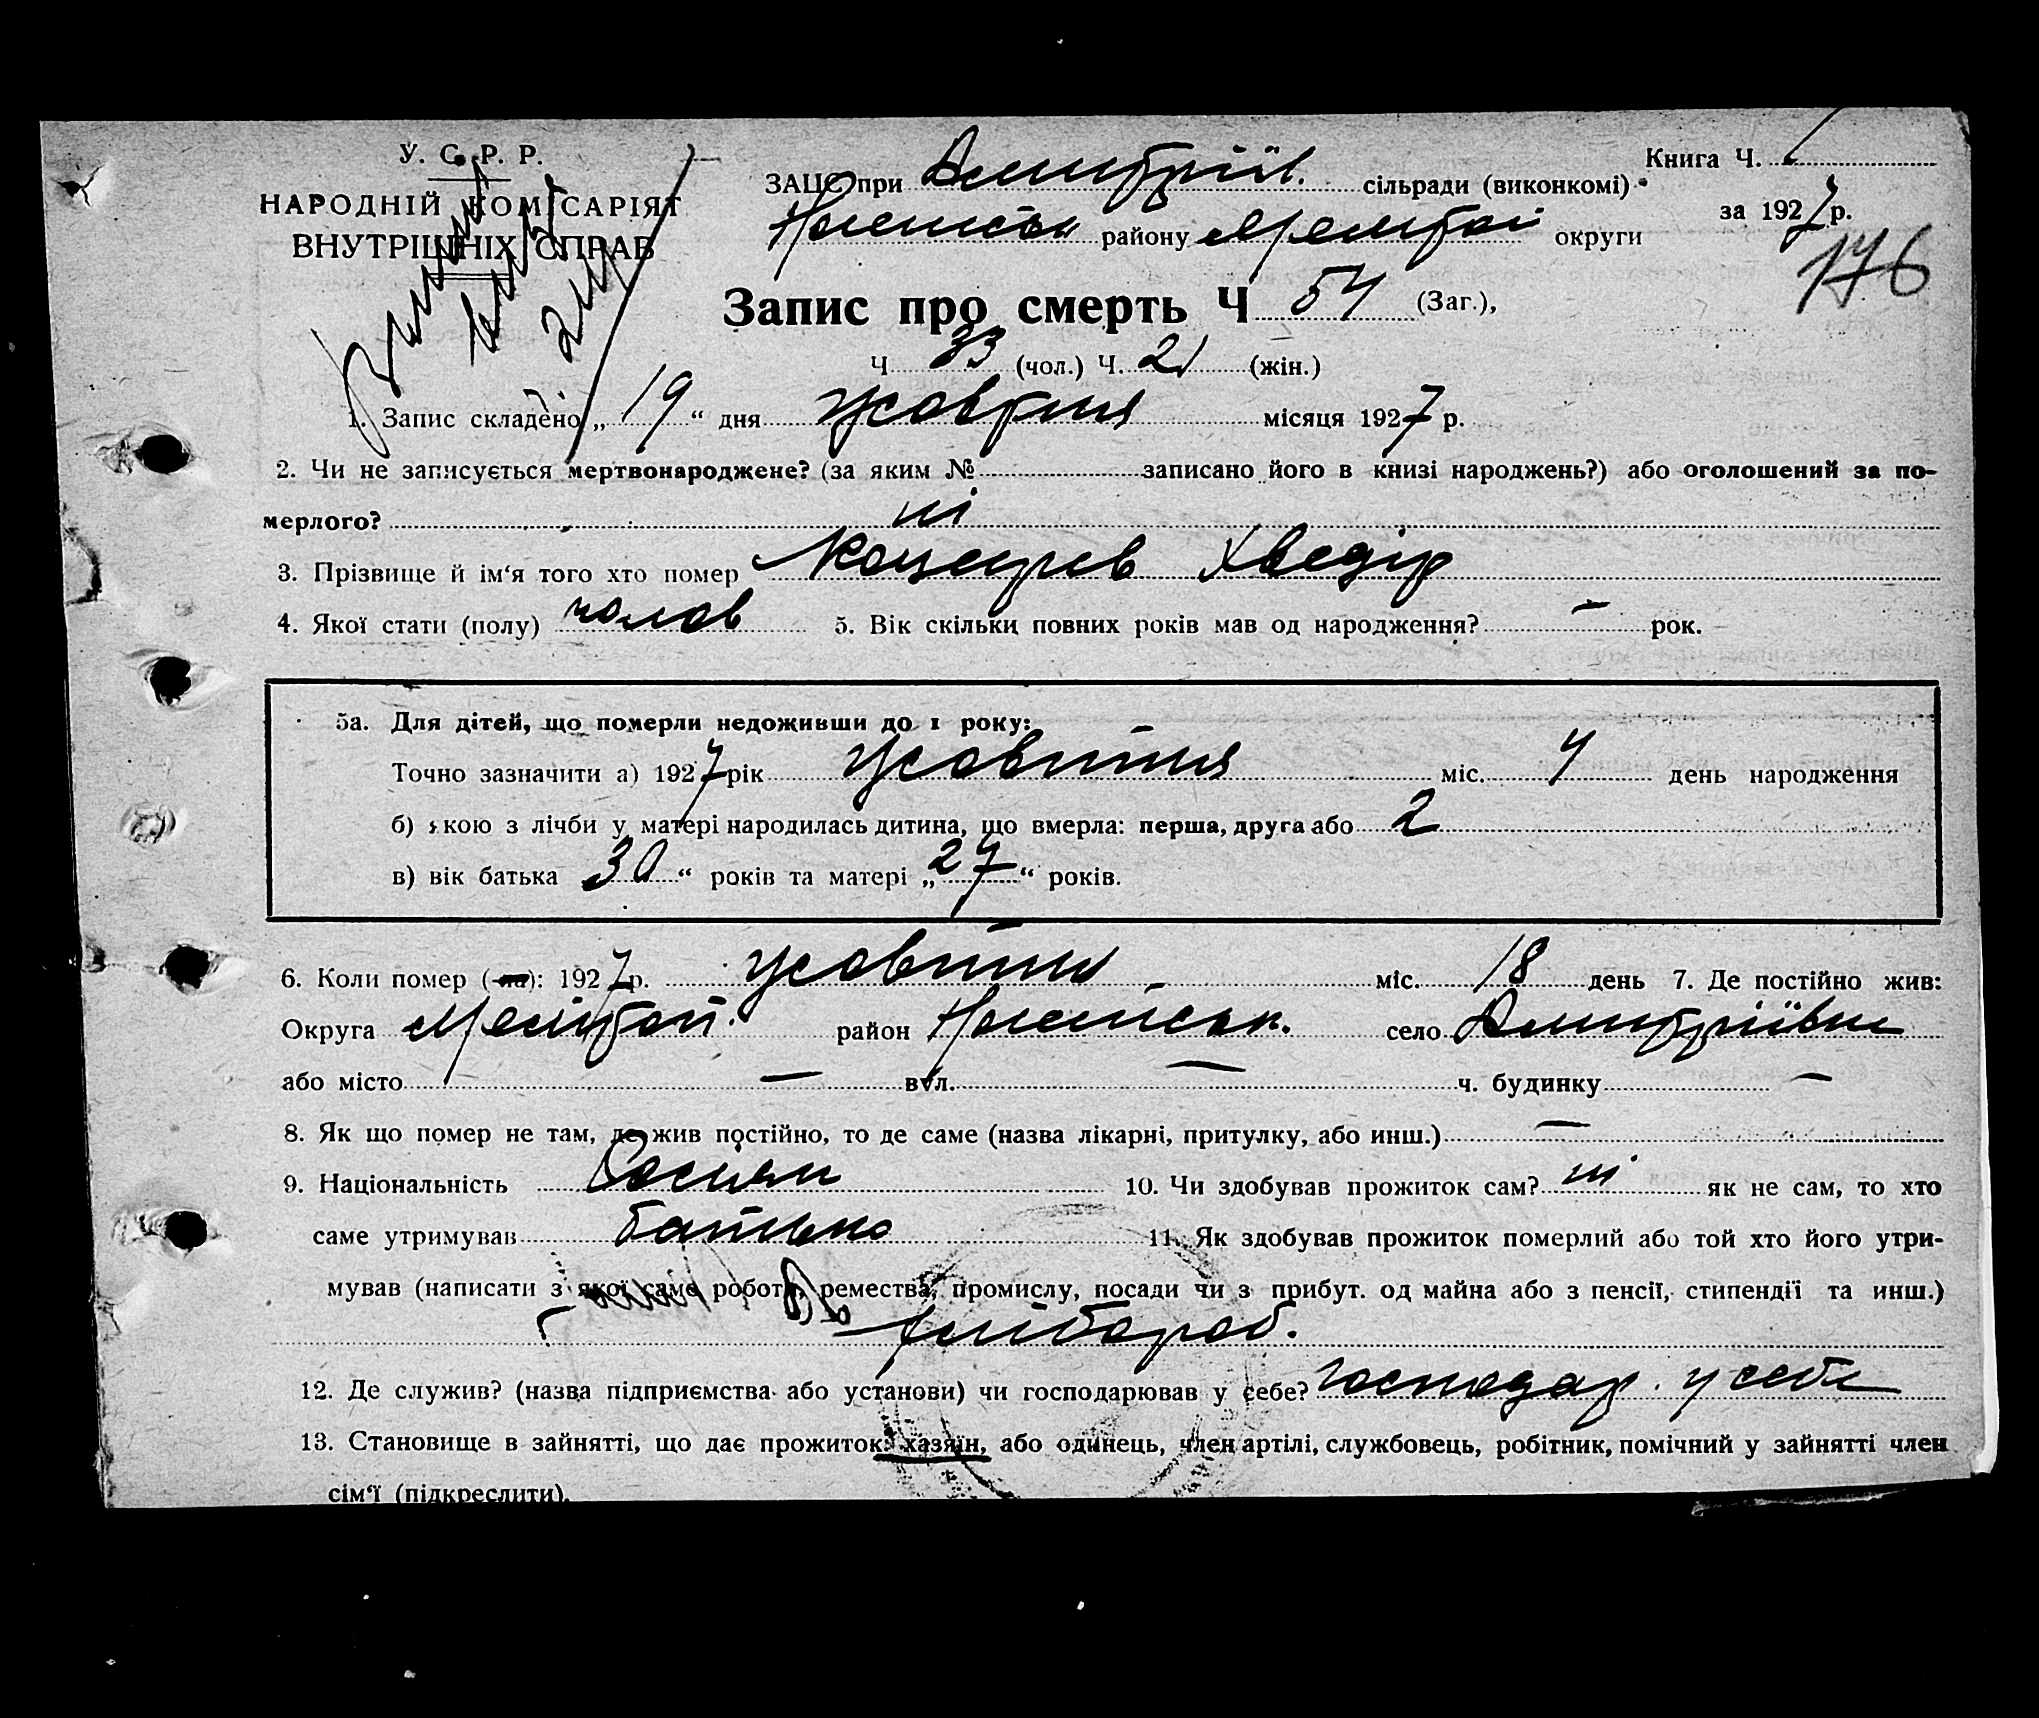 У. С. Р. Р.
НАРОДНІЙ КОМІСАРІЯТ
ВНУТРІШНІХ СПРАВ
Книга Ч.
ЗАЦС при Дмитріїв. сільради (виконкомі)
за 1927 р.
району округи
176
Запис про смерть Ч 54 (Заг.),
Ч 33 (чол.) Ч. 21 (жін.)
1. Запис складено „ 19 “ дня жовтня місяця 1927 р.
2. Чи не записується мертвонароджене? (за яким № записано його в книзі народжень?) або оголошений за по-
мерлого? ні
3. Прізвище й ім‘я того хто помер Хведір
4. Якої стати (полу) чолов 5. Вік скільки повних років мав од народження? — рок.
5а. Для дітей, що померли недоживши до 1 року:
Точно зазначити а) 1927 рік жовтня міс. 4 день народження
б) якою з лічби у матері народилась дитина, що вмерла: перша, друга або 2
в) вік батька 30 “ років та матері „ 27 “ років.
6. Коли помер (на): 1927 р. жовтня міс. 18 день 7. Де постійно жив:
Округа район село Дмитріївка
або місто — вул. — ч. будинку —
8. Як що помер не там, де жив постійно, то де саме (назва лікарні, притулку, або инш.) —
9. Національність Росіян 10. Чи здобував прожиток сам? ні як не сам, то хто
саме утримував батько 11. Як здобував прожиток померлий або той хто його утри-
мував (написати з якої саме роботи, ремества, промислу, посади чи з прибут. од майна або з пенсії, стипендії та инш.)
хлібороб.
12. Де служив? (назва підприємства або установи) чи господарював у себе? господар. у себе
13. Становище в зайнятті, що дає прожиток: хазяїн, або одинець, член артілі, службовець, робітник, помічний у зайнятті член
сім‘ї (підкреслити).